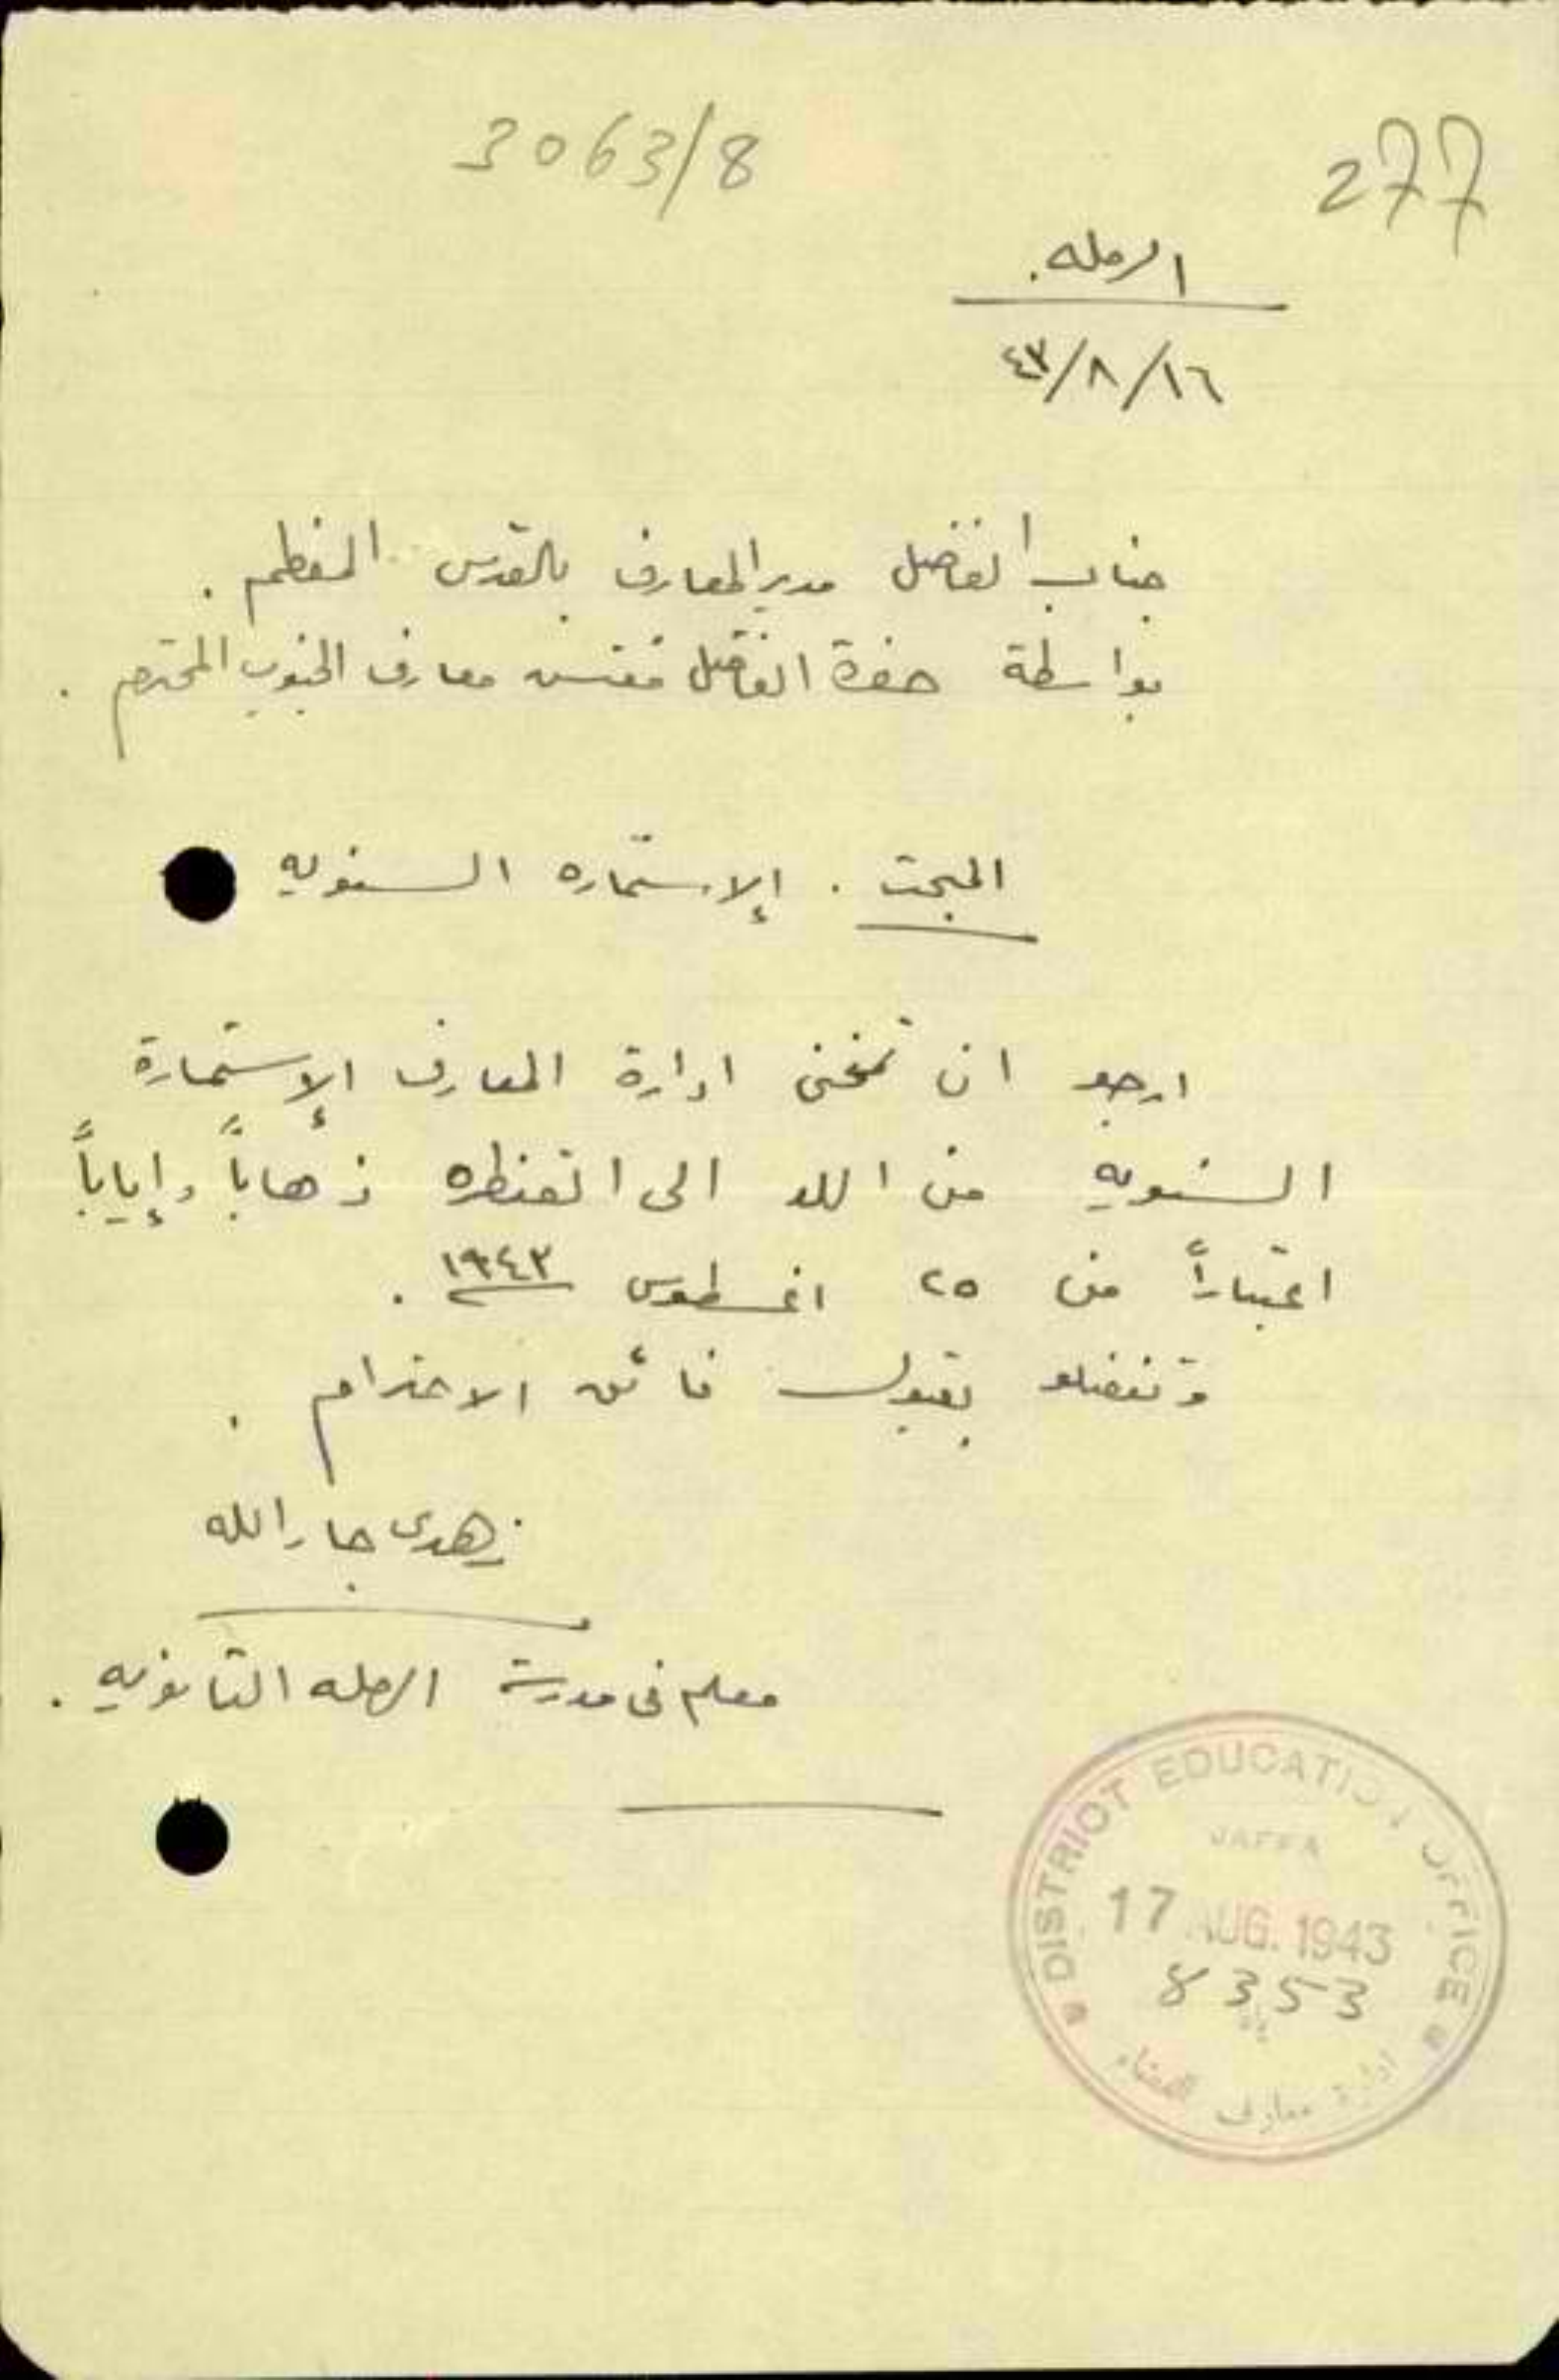 3063/8
277
الرمله.
١٦/٨/٤٣
جناب الفاضل مدير المعارف بالقدس المعظم.
بواسطة حضرة الفاضل مفتش معارف الجنوب المحترم.
المبحث. الإستماره السنويه
ارجو ان تمنحني ادارة المعارف الإستمارة
السنويه من اللد الى القنطره ذهاباً وإياباً
اعتباراً من ٢٥ اغسطوس ١٩٤٣.
وتفضلو بقبول فائق الاحترام.
زهدى جار الله
معلم فى مدرسة الرمله الثانويه.
DISTRICT EDUCATION OFFICE
JAFFA
17 AUG. 1943
8353
ادارة معارف القضاء